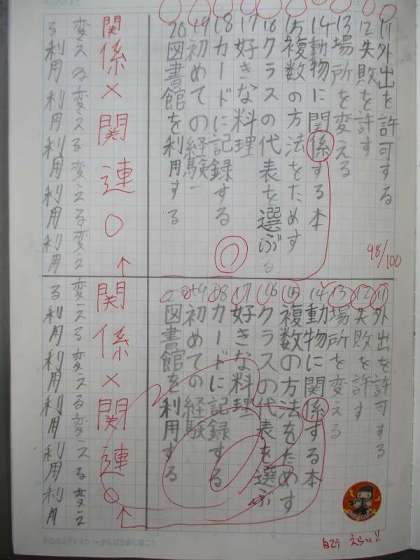 ⑪外出を許可する
⑫失敗を許す
⑬場所を変える
⑭動物に関係する本
⑮複数の方法をためす
⑯クラスの代表を選ぶ
⑰好きな料理
⑱カードに記録する
⑲初めての経験
⑳図書館を利用する
98/100
関係×関連○
変える変える変える変える
る利用利用利用利用
⑪外出を許可する
⑫失敗を許す
⑬場所を変える
⑭動物に関係する本
⑮複数の方法をためす
⑯クラスの代表を選ぶ
⑰好きな料理
⑱カードに記録する
⑲初めての経験
⑳図書館を利用する
関係×関連○
変える変える変える変え
る利用利用利用利用
えらい!!